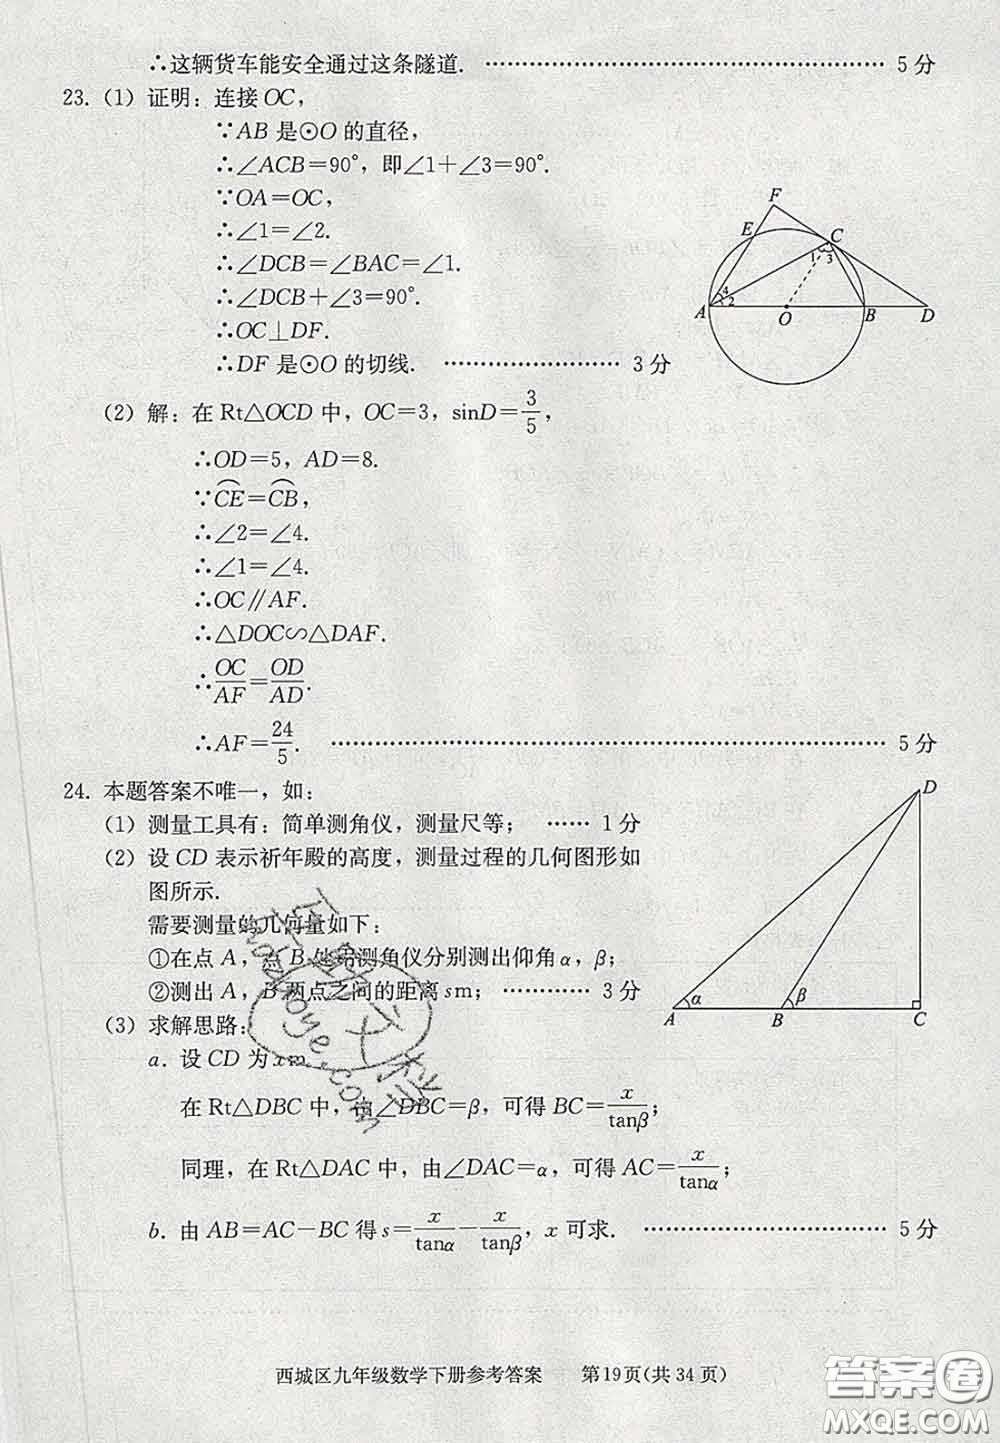 ∴这辆货车能安全通过这条隧道. ………………………………………… 5 分
23. (1) 证明：连接 OC，
∵AB 是⊙O 的直径，
∴∠ACB=90°，即∠1+∠3=90°.
∵OA=OC，
∴∠1=∠2.
∴∠DCB=∠BAC=∠1.
∴∠DCB+∠3=90°.
∴OC⊥DF.
∴DF 是⊙O 的切线. ……………… 3 分
F
E
C
1
3
4
2
A
O
B
D
(2) 解：在 Rt△OCD 中，OC=3，sinD=3/5，
∴OD=5，AD=8.
∵⌒CE=⌒CB，
∴∠2=∠4.
∴∠1=∠4.
∴OC∥AF.
∴△DOC∽△DAF.
∴OC/AF=OD/AD.
∴AF=24/5. ………………………………………………… 5 分
24. 本题答案不唯一，如：
(1) 测量工具有：简单测角仪，测量尺等； …… 1 分
(2) 设 CD 表示祈年殿的高度，测量过程的几何图形如
图所示.
需要测量的几何量如下：
①在点 A，点 B 处用测角仪分别测出仰角 α，β；
②测出 A，B 两点之间的距离 s m； ………… 3 分
D
α
β
A
B
C
(3) 求解思路：
a. 设 CD 为 x m.
在 Rt△DBC 中，由∠DBC=β，可得 BC=x/tanβ；
同理，在 Rt△DAC 中，由∠DAC=α，可得 AC=x/tanα；
b. 由 AB=AC−BC 得 s=x/tanα−x/tanβ，x 可求. …………………… 5 分
西城区九年级数学下册参考答案 第19页(共 34 页)
答案圈
MXQE.COM